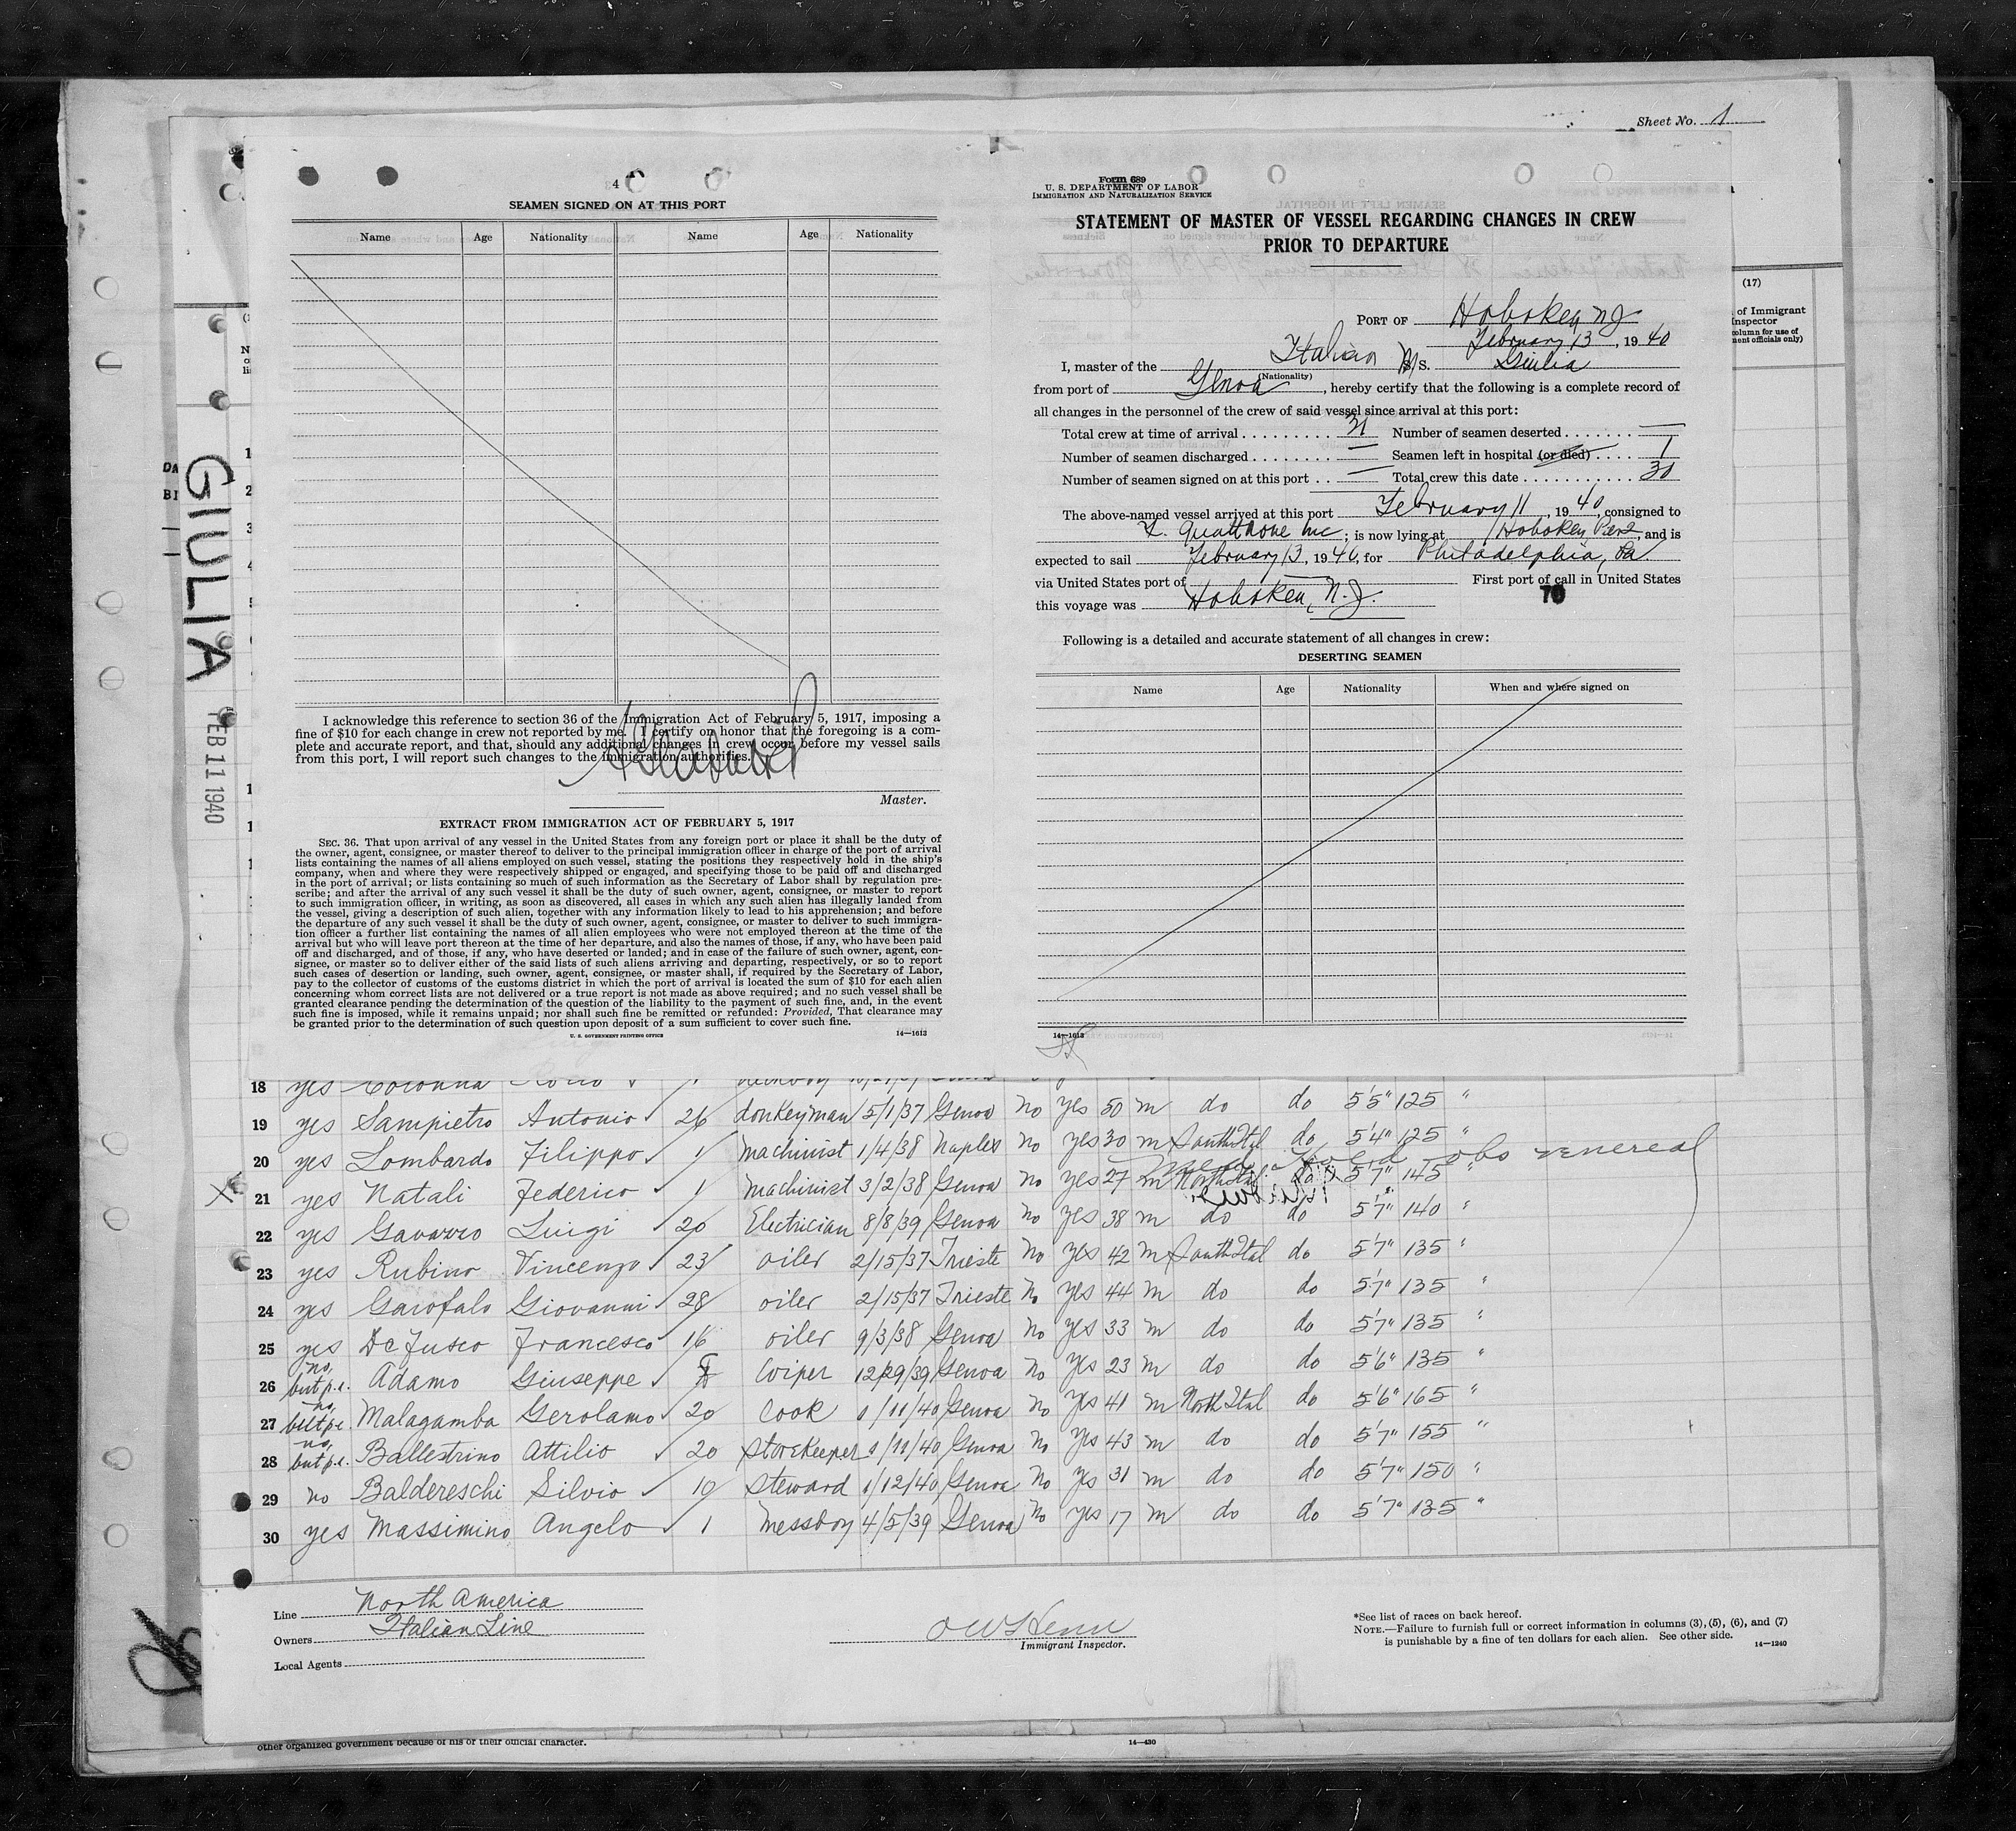 Sheet No. 1
4
SEAMEN SIGNED ON AT THIS PORT
Name Age Nationality Name Age Nationality
I acknowledge this reference to section 36 of the Immigration Act of February 5, 1917, imposing a
fine of $10 for each change in crew not reported by me. I certify on honor that the foregoing is a com-
plete and accurate report, and that, should any additional changes in crew occur before my vessel sails
from this port, I will report such changes to the immigration authorities.
Master.
EXTRACT FROM IMMIGRATION ACT OF FEBRUARY 5, 1917
SEC. 36. That upon arrival of any vessel in the United States from any foreign port or place it shall be the duty of
the owner, agent, consignee, or master thereof to deliver to the principal immigration officer in charge of the port of arrival
lists containing the names of all aliens employed on such vessel, stating the positions they respectively hold in the ship's
company, when and where they were respectively shipped or engaged, and specifying those to be paid off and discharged
in the port of arrival; or lists containing so much of such information as the Secretary of Labor shall by regulation pre-
scribe; and after the arrival of any such vessel it shall be the duty of such owner, agent, consignee, or master to report
to such immigration officer, in writing, as soon as discovered, all cases in which any such alien has illegally landed from
the vessel, giving a description of such alien, together with any information likely to lead to his apprehension; and before
the departure of any such vessel it shall be the duty of such owner, agent, consignee, or master to deliver to such immigra-
tion officer a further list containing the names of all alien employees who were not employed thereon at the time of the
arrival but who will leave port thereon at the time of her departure, and also the names of those, if any, who have been paid
off and discharged, and of those, if any, who have deserted or landed; and in case of the failure of such owner, agent, con-
signee, or master so to deliver either of the said lists of such aliens arriving and departing, respectively, or so to report
such cases of desertion or landing, such owner, agent, consignee, or master shall, if required by the Secretary of Labor,
pay to the collector of customs of the customs district in which the port of arrival is located the sum of $10 for each alien
concerning whom correct lists are not delivered or a true report is not made as above required; and no such vessel shall be
granted clearance pending the determination of the question of the liability to the payment of such fine, and, in the event
such fine is imposed, while it remains unpaid; nor shall such fine be remitted or refunded: Provided, That clearance may
be granted prior to the determination of such question upon deposit of a sum sufficient to cover such fine.
U. S. GOVERNMENT PRINTING OFFICE 14—1613
Form 689
U. S. DEPARTMENT OF LABOR
IMMIGRATION AND NATURALIZATION SERVICE
STATEMENT OF MASTER OF VESSEL REGARDING CHANGES IN CREW
PRIOR TO DEPARTURE
PORT OF Hoboken NJ
February 13, 1940
I, master of the Italian M/S. Giulia
(Nationality)
from port of Genoa, hereby certify that the following is a complete record of
all changes in the personnel of the crew of said vessel since arrival at this port:
Total crew at time of arrival 31 Number of seamen deserted —
Number of seamen discharged — Seamen left in hospital (or died) 1
Number of seamen signed on at this port — Total crew this date 30
The above-named vessel arrived at this port February 11, 1940, consigned to
Inc; is now lying at Hoboken Pier 2, and is
expected to sail February 13, 1940, for Philadelphia, Pa
via United States port of First port of call in United States
this voyage was Hoboken, N.J.
70
Following is a detailed and accurate statement of all changes in crew:
DESERTING SEAMEN
Name Age Nationality When and where signed on
14—1613
(17)
of Immigrant
Inspector
column for use of
ment officials only)
GIULIA
FEB 11 1940
18 yes Colonna
19 yes Sampietro Antonio 26 donkeyman 5/1/37 Genoa no yes 50 m do do 5'5" 125 "
20 yes Lombardo Filippo 1 machinist 1/4/38 Naples no yes 30 m South Ital do 5'4" 125 "
obs venereal
X 21 yes Natali Federico 1 machinist 3/2/38 Genoa no yes 27 m North Ital do 5'7" 145 "
22 yes Gavazzo Luigi 20 Electrician 8/8/39 Genoa no yes 38 m do do 5'7" 140 "
23 yes Rubino Vincenzo 23 oiler 2/15/37 Trieste no yes 42 m South Ital do 5'7" 135 "
24 yes Garofalo Giovanni 28 oiler 2/15/37 Trieste no yes 44 m do do 5'7" 135 "
25 yes De Fusco Francesco 16 oiler 9/3/38 Genoa no yes 33 m do do 5'7" 135 "
26 no, but p.e. Adamo Giuseppe wiper 12/29/39 Genoa no yes 23 m do do 5'6" 135 "
27 no, but p.e. Malagamba Gerolamo 20 cook 1/11/40 Genoa no yes 41 m North Ital do 5'6" 165 "
28 no, but p.e. Ballestrino Attilio 20 storekeeper 1/11/40 Genoa no yes 43 m do do 5'7" 155 "
29 no Baldereschi Silvio 10 steward 1/12/40 Genoa no yes 31 m do do 5'7" 150 "
30 yes Massimino Angelo 1 messboy 4/5/39 Genoa no yes 17 m do do 5'7" 135 "
Line North America
Owners Italian Line
Local Agents
Immigrant Inspector.
*See list of races on back hereof.
NOTE.—Failure to furnish full or correct information in columns (3), (5), (6), and (7)
is punishable by a fine of ten dollars for each alien. See other side.
14—1240
other organized government because of his or their official character.
14—430